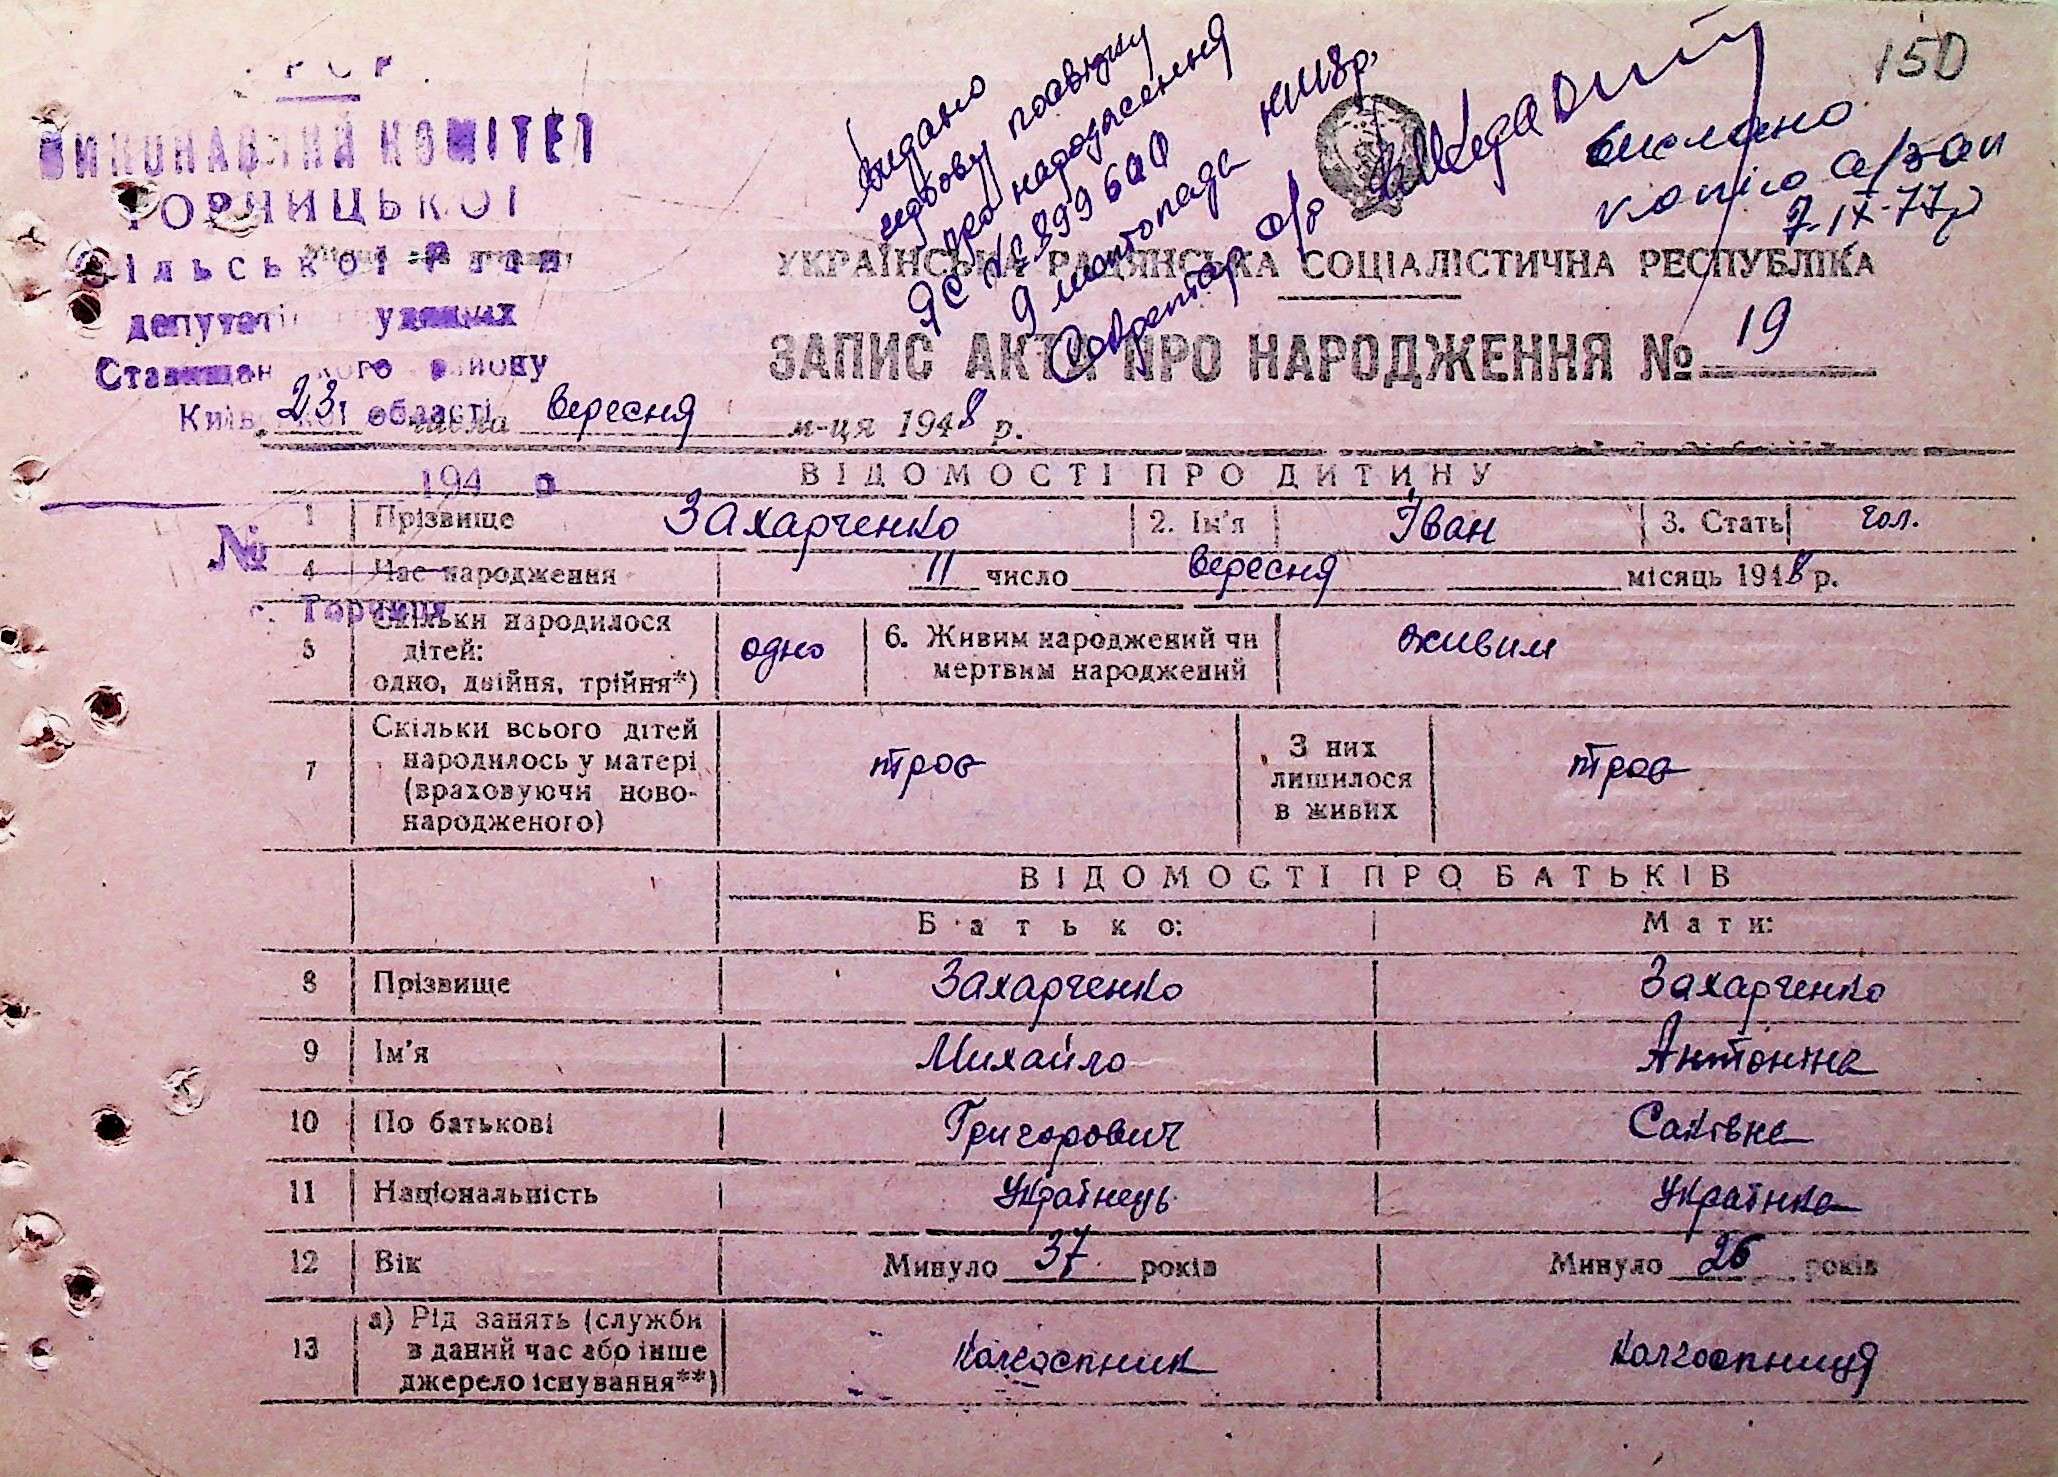 150
Видано
про народження
9 листопада
вислано
копію
7.IX-77р
ВИКОНАВЧИЙ КОМІТЕТ
ГОРНИЦЬКОЇ
Сільської Ради
депутатів трудящих
Ставищанського району
Київської області
194 р
№
с. Торчиця
УКРАЇНСЬКА РАДЯНСЬКА СОЦІАЛІСТИЧНА РЕСПУБЛІКА
ЗАПИС АКТА ПРО НАРОДЖЕННЯ № 19
23 числа вересня м-ця 1948 р.
ВІДОМОСТІ ПРО ДИТИНУ
1 Прізвище Захарченко 2. Ім'я Іван 3. Стать чол.
4 Час народження 11 число вересня місяць 1948 р.
5 Скільки народилося
дітей:
одно, двійня, трійня*)
одно
6. Живим народжений чи
мертвим народжений
живим
7 Скільки всього дітей
народилось у матері
(враховуючи ново-
народженого)
троє
З них
лишилося
в живих
троє
ВІДОМОСТІ ПРО БАТЬКІВ
Батько: Мати:
8 Прізвище Захарченко Захарченко
9 Ім'я Михайло Антоніна
10 По батькові Григорович Саківна
11 Національність Українець Українка
12 Вік Минуло 37 років Минуло 26 років
13 а) Рід занять (служби
в даний час або інше
джерело існування**)
колгоспник колгоспниця